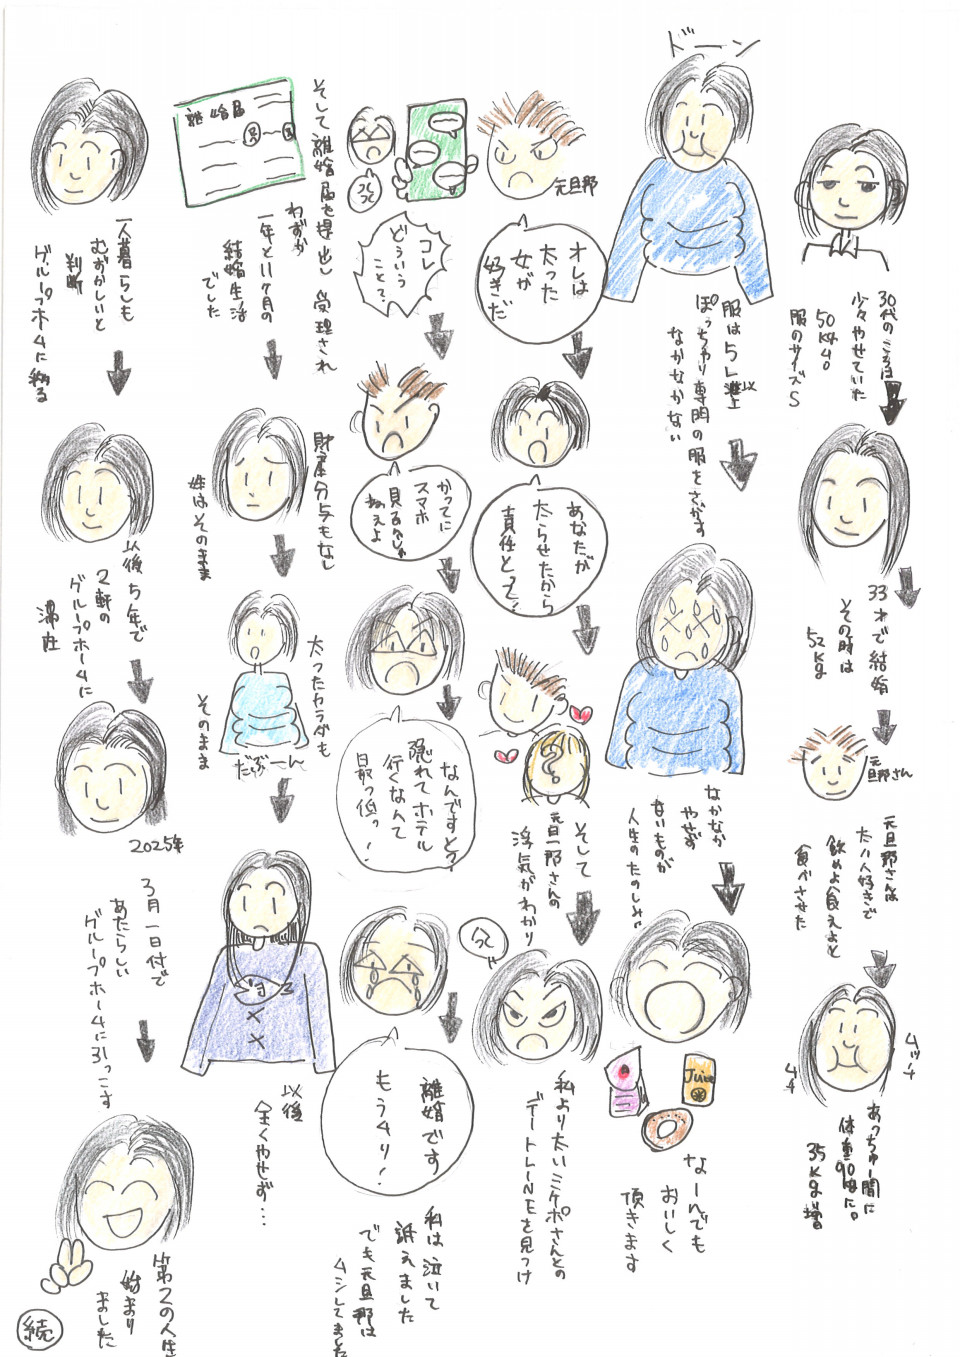 30代のころは
少々やせていた
50kg。
服のサイズS
33才で結婚
その時は
52kg
元
旦那さん
元旦那さんは
太い人好きで
飲めよ食えよと
食べさせた
ムッチ
ムチ
あっちゅー間に
体重90kgに。
35kg増
ドーン
服は5L以上
ぽっちゃり専門の服をさがす
なかなかない
なかなか
やせず
ないものが
人生のたのしみ
Juice
なーんでも
おいしく
頂きます
元旦那
オレは
太った
女が
好きだ
あなたが
太らせたから
責任とって?
そして
元旦那さんの
浮気がわかり
私より太いミケポさんとの
デートLINEを見つけ
コレ
どういう
ことて?
かってに
スマホ
見るんじゃ
ねえよ
なんですと?
隠れてホテル
行くなんて
最っ低っ!
離婚です
もうムリ!
私は泣いて
訴えました
でも元旦那は
ムシしてました
離婚届
そして離婚届を提出し受理され
わずか
一年と11ケ月の
結婚生活
でした
財産分与もなし
姓はそのまま
太ったカラダも
そのまま
だぶーん
以後
全くやせず…
一人暮らしも
むずかしいと
判断
グループホームに移る
以後5年で
2軒の
グループホームに
滞在
2025年
3月一日付で
あたらしい
グループホームに引っこす
第2の人生
始まり
ました
続